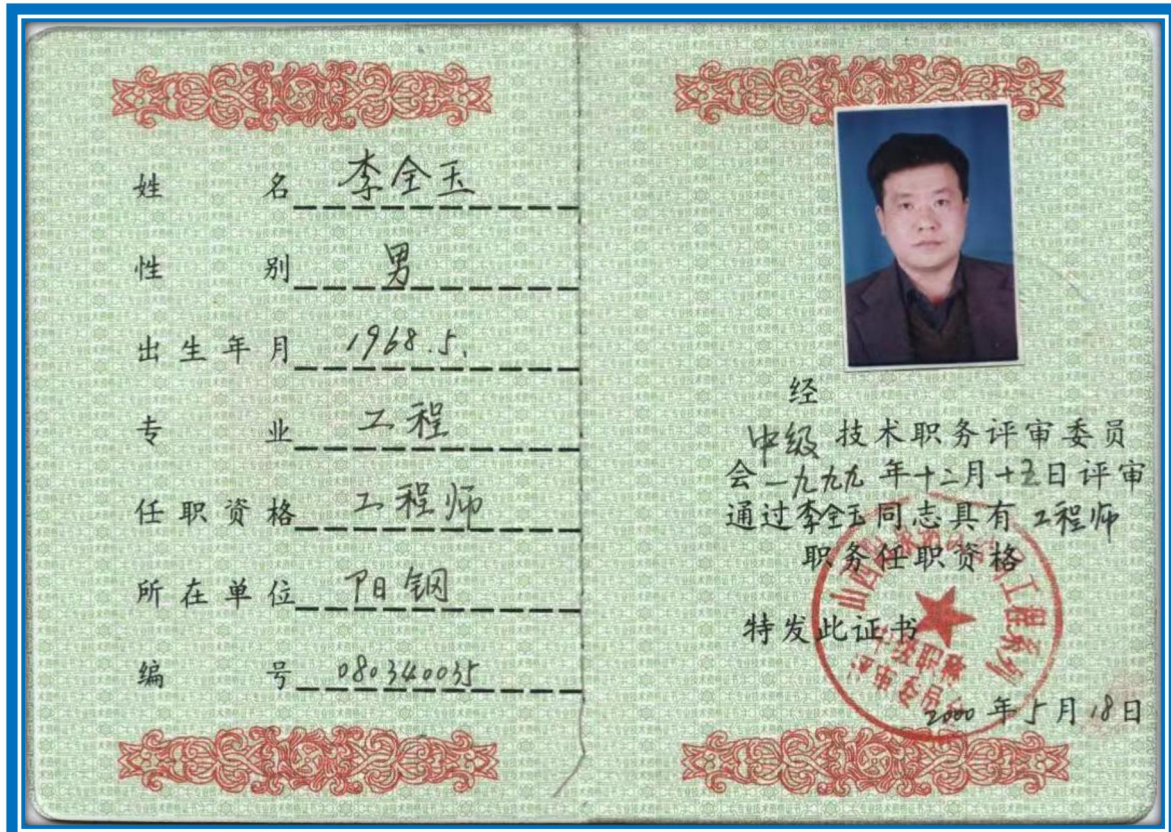 姓名 李全玉
性别 男
出生年月 1968.5.
专业 工程
任职资格 工程师
所在单位 阳钢
编号 080340035
经
中级技术职务评审委员
会一九九九年十二月十五日评审
通过李全玉同志具有工程师
职务任职资格
特发此证书
2000年5月18日
山西 工程系列
中级职称
评审委员会